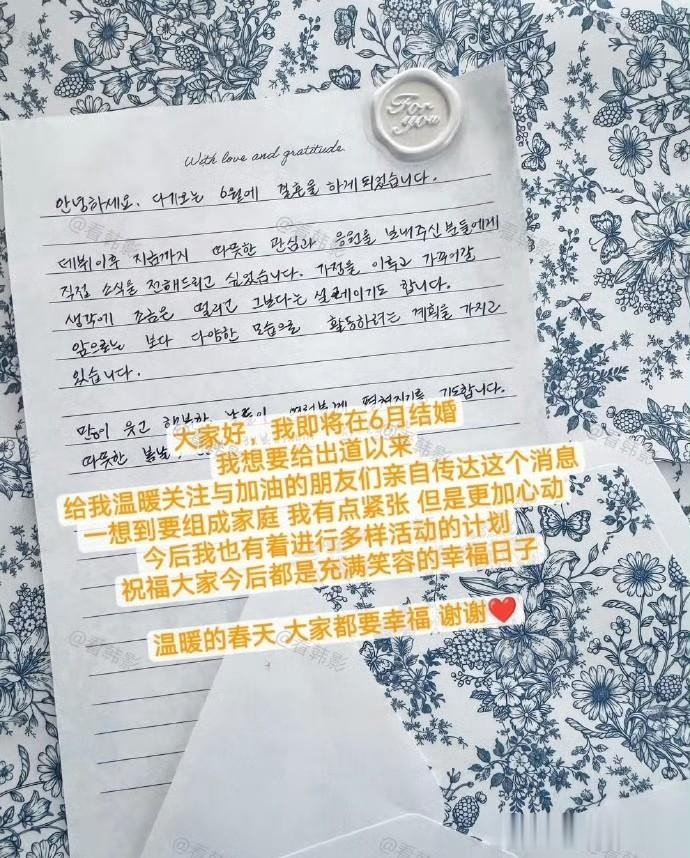 For you
With love and gratitude
안녕하세요. 다가오는 6월에 결혼을 하게 되었습니다.
데뷔이후 지금까지 따뜻한 관심과 응원을 보내주신 분들에게
직접 소식을 전해드리고 싶었습니다. 가정을 이루고 가꾸어갈
생각에 조금은 떨리고 그보다는 설레이기도 합니다.
앞으로는 보다 다양한 모습으로 활동하려는 계획을 가지고
있습니다.
많이 웃고 행복한 날들이 펼쳐지기를 기도합니다.
따뜻한 봄날
大家好 我即将在6月结婚
我想要给出道以来
给我温暖关注与加油的朋友们亲自传达这个消息
一想到要组成家庭 我有点紧张 但是更加心动
今后我也有着进行多样活动的计划
祝福大家今后都是充满笑容的幸福日子
温暖的春天 大家都要幸福 谢谢❤️
@看韩影